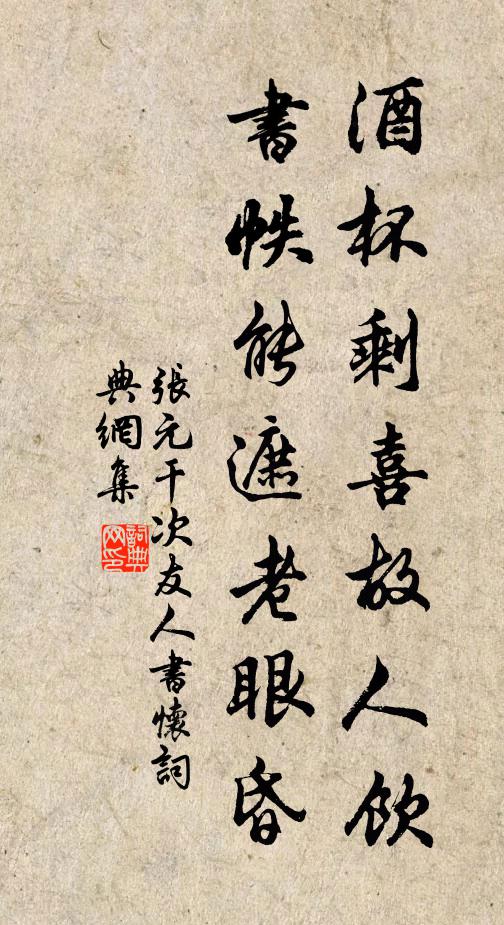 酒杯剩喜故人飲
書帙能遮老眼昏
張元干次友人書懷詞
典網集
詞典网印